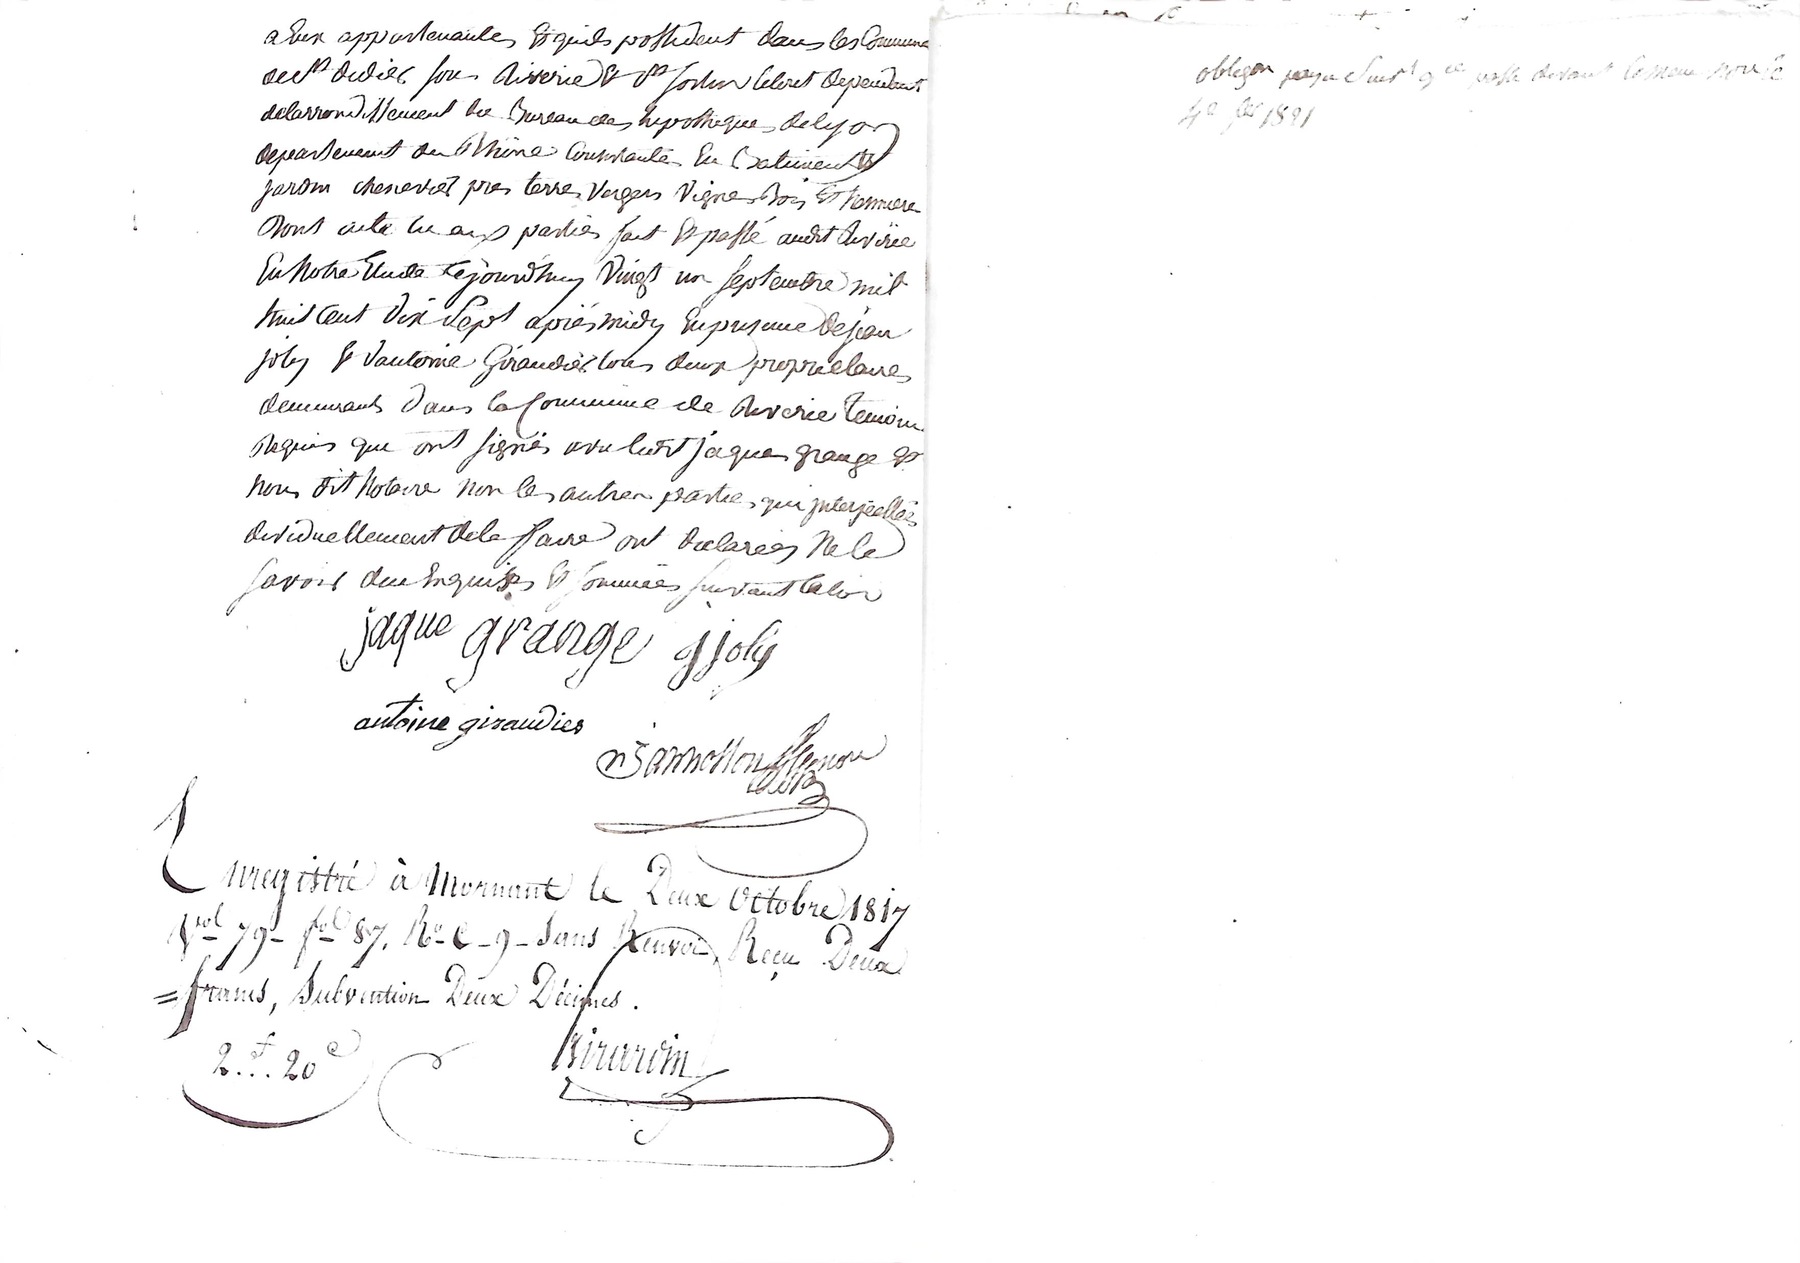 a Eux appartenantes Et quils possedent dans les Commune
de St didier sous Riverie Et St Sorlin le tout dependant
de larrondissement du Bureau des hipotheques de lyon
departement du Rhône Consistantes En Batiments
jardin chenevier pres terres Vergers Vignes Bois Et hermiere
Dont acte lu aux parties fait Et passé audit Riverie
En Notre Etude Cejourdhuy Vingt un Septembre mil
huit Cent Dix Sept après midy En presence de jean
joly Et d'antoine Giraudier tous deux proprietaires
demeurants Dans la Commune de Riverie temoins
Requis qui ont signés avec ledit jaques grange Et
Nous dit Notaire non les autres parties qui interpellées
dividuellement de le faire ont declarées Ne le
savoir due Enquises Et sommées suivant la loi
jaque grange j joly
antoine giraudier
Enregistré à Mornant le Deux Octobre 1817
Vol 79 - fol 87. Ro C - 9 - Sans Renvoi, Reçu Deux
= francs, Subvention Deux Décimes.
2.f. 20c
Girardin
obligon passé devant
1821